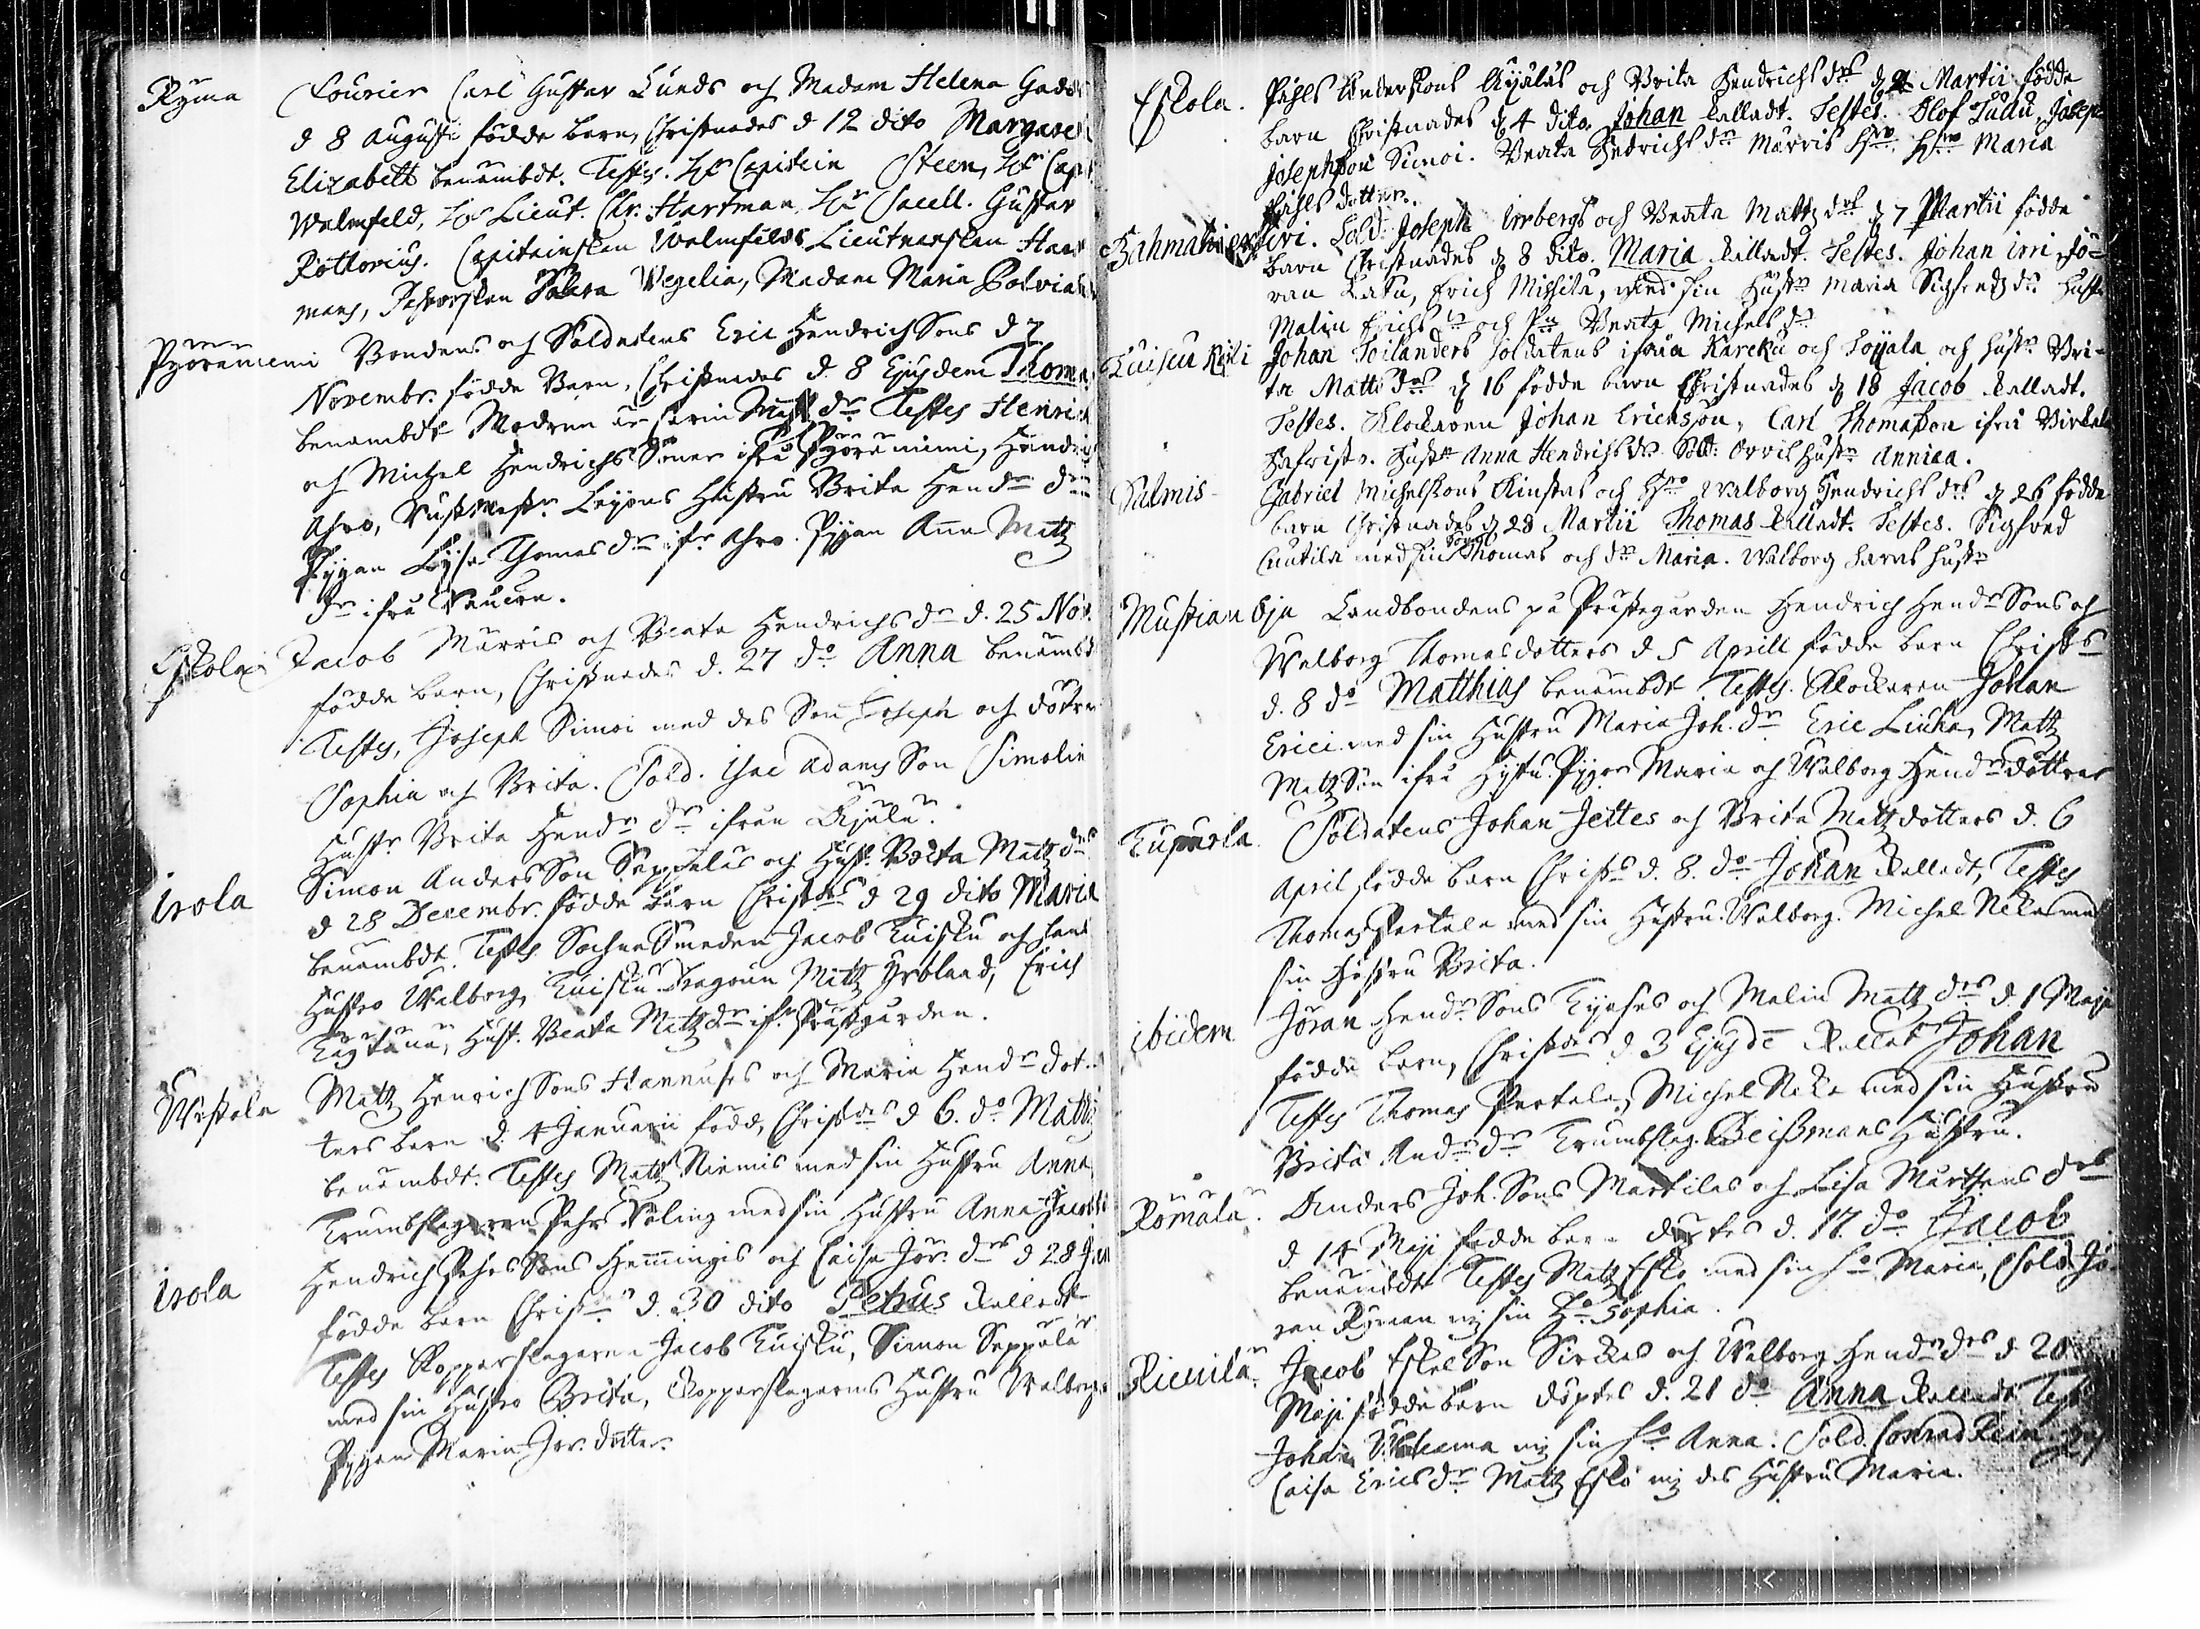 Kyma Fourier Carl Gustav Lunds och Madam Helena Gadd
d 8 Augusti födde barn, Christnades d 12 dito Margaret
Elizabeth benämbdt. Testes. Hr Capitein Steen, Hr Capt
Walmfeld, Hr Lieut. Chr. Hartman, Hr Sacell. Gustav
Rottovius. Capiteinskan Walmfelds Lieutnanskan Hart
mans, Wegelia, Madam Maria Polvia
Pyöräniemi Bondens och Soldatens Eric Hendrichsons d 7
Novembr. födde Barn, Christnades d. 8 Ejusdem Thoma
benämbdt Modren är Carin Matts dr Testes Henric
och Michel Hendrichs Söner ifrå Pyöräniemi, Hendric
Ahvo, Hustru Brita Hendr dr
Pigan Lisa Thomas dr ifr Ahvo. Pigan Ana Matz
dr ifrå
Eskola Jacob Märris och Beata Hendrichs dr d. 25 Nov.
födde barn, Christnades d. 27 do Anna benämbdt
Testes, Joseph Simoi med des Son Joseph och dotter
Sophia och Brita. Sold. Isac Adams Son Simolin
Hustr. Brita Hendr dr ifrån Kylä.
Isola Simon Anders Son Seppäläs och Hust. Brita Matz drs
d 28 Decembr. födde barn Christnades d 29 dito Maria
benämbdt. Testes Sochne Smeden Jacob Kuisku och hans
Hustro Walborg Kuisku Dragoun Matz Erich
Hust. Beata Matz dr ifr Prästgården.
Uskola Matz Henrich Sons Hannuses och Maria Hendr dot-
ters barn d. 4 Januarii född, Christnades d 6. do Matts
benämbdt. Testes Matz Niemis med sin Hustru Anna
Trumbslagaren Pehr med sin Hustru Anna Jacobs
Isola Hendrich Pehrs Sons Hemmingis och Caisa Jör. drs d 28 Jan
födde barn Christn. d. 30 dito Petrus kalladt
Testes Kopparslagaren Jacob Kuisku, Simon Seppälä
med sin Hustro Brita, Kopparslagarens Hustru Walborg
Pigan Maria Jör. dotter.
Eskola. Påhls Andersons Kyläs och Brita Hendrichs drs d 2 Martii födde
barn Christnades d 4 dito. Johan kalladt. Testes. Olof Ladu, Joseph
Josephson Simoi. Beata Hendrichs dr Märris hro, hro Maria
Påhls dotter.
Sold. Joseph Irrbergs och Beata Matz drs d 7 Martii födde
barn Christnades d 8 dito. Maria kalladt. Testes. Johan Irri, Jö-
ran Latu, Erich Mikkila, med sin Hustr Maria Sigfreds dr Hust
Malin Erichs dr och Beata Michels dr
Johan Toilanders Soldatens ifrån Kareku och Toyala och Hustr Bri-
ta Matts drs d 16 födde barn Christnades d 18 Jacob kalladt.
Testes. Klockaren Johan Ericksson, Carl Thomasson ifrå
Hustr Anna Hendrichs dr. Sold: Hustr Annica.
Salmis Gabriel Michelsons Kinstas och hro Walborg Hendrichs drs d 26 födde
barn Christnades d 28 Martii Thomas kalladt. Testes. Sigfred
Cuutila med sin Son Thomas och dr Maria. Walborg Hustr
Mustian Oja Landbondens på Prästegården Hendrich Hendr Sons och
Walborg Thomasdotters d 5 Aprill födde barn Christn
d. 8 do Matthias benämbdt. Testes. Klockaren Johan
Erici med sin Hustru Maria Joh. dr Eric Liuha, Matz
Matz Son ifrå Pigor Maria och Walborg Hendr döttrar
Soldatens Johan Jettes och Brita Matzdotters d. 6
April födde barn Christn d. 8. do Johan kalladt, Testes
Thomas Pertula med sin Hustru Walborg. Michel Neka med
sin Hustru Brita.
ibidem Jöran Hendr Sons och Malin Matz drs d. 1 Maji
födde barn, Christnades d 3 Ejusd kallat Johan
Testes Thomas Pertula, Michel Neka med sin Hustru
Brita Andr dr Trumbslag. Beissmans Hustru.
Römälä. Anders Joh. Sons Markilas och Lisa Mårtens drs
d 14 Maji födde barn döptes d. 17. do Jacob
benämbdt Testes Matz Esko med sin ho Maria, Sold. Jö
ran Kyman mz sin ho Sophia.
Jacob Eskel Son Sirckas och Walborg Hendr drs d 20
Maji födde barn döptes d. 21 do Anna kalladt Test
Johan mz sin ho Anna. Sold. Conrad Rein
Caisa Erics dr Matz Esko mz des Hustru Maria.